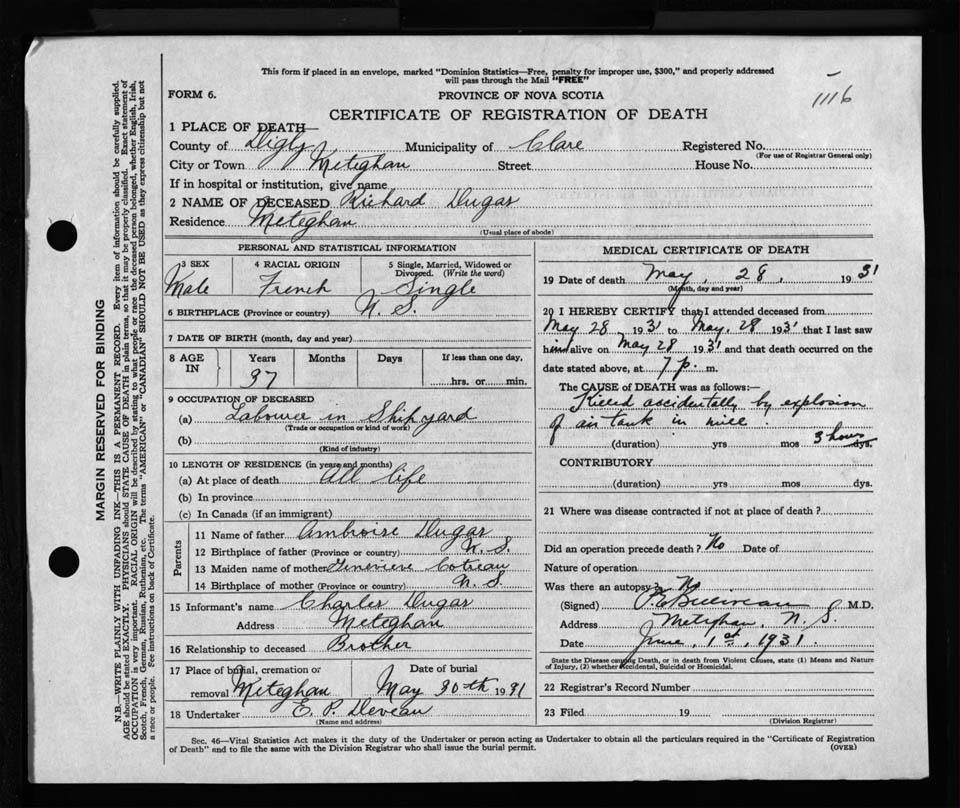 This form if placed in an envelope, marked "Dominion Statistics—Free, penalty for improper use, $300," and properly addressed
will pass through the Mail "FREE"
FORM 6.
PROVINCE OF NOVA SCOTIA
1116
CERTIFICATE OF REGISTRATION OF DEATH
1 PLACE OF DEATH—
County of Digby Municipality of Clare Registered No.
(For use of Registrar General only)
City or Town Meteghan Street House No.
If in hospital or institution, give name
2 NAME OF DECEASED Richard Dugas
Residence Meteghan
(Usual place of abode)
PERSONAL AND STATISTICAL INFORMATION
3 SEX 4 RACIAL ORIGIN 5 Single, Married, Widowed or Divorced. (Write the word)
Male French Single
6 BIRTHPLACE (Province or country) N. S.
7 DATE OF BIRTH (month, day and year)
8 AGE IN Years Months Days If less than one day,
37 hrs. or min.
9 OCCUPATION OF DECEASED
(a) Labourer in Shipyard
(Trade or occupation or kind of work)
(b)
(Kind of industry)
10 LENGTH OF RESIDENCE (in years and months)
(a) At place of death All life
(b) In province
(c) In Canada (if an immigrant)
Parents
11 Name of father Ambroise Dugas
12 Birthplace of father (Province or country) N. S.
13 Maiden name of mother Genevieve Cotreau
14 Birthplace of mother (Province or country) N. S.
15 Informant's name Charles Dugas
Address Meteghan
16 Relationship to deceased Brother
17 Place of burial, cremation or removal Meteghan Date of burial May 30th 1931
18 Undertaker E. P. Deveau
(Name and address)
MEDICAL CERTIFICATE OF DEATH
19 Date of death May, 28, 1931
(Month, day and year)
20 I HEREBY CERTIFY that I attended deceased from
May 28 1931 to May. 28 1931 that I last saw
him alive on May 28 1931 and that death occurred on the
date stated above, at 7 p. m.
The CAUSE OF DEATH was as follows:—
Killed accidentally by explosion
of air tank in mill.
(duration) yrs mos 3 hours dys.
CONTRIBUTORY
(duration) yrs. mos. dys.
21 Where was disease contracted if not at place of death?
Did an operation precede death? No Date of
Nature of operation
Was there an autopsy? No
(Signed) M.D.
Address Meteghan, N. S.
Date June, 1st, 1931.
State the Disease causing Death, or in death from Violent Causes, state (1) Means and
Nature of Injury, (2) whether Accidental, Suicidal or Homicidal.
22 Registrar's Record Number
23 Filed 19
(Division Registrar)
Sec. 46—Vital Statistics Act makes it the duty of the Undertaker or person acting as Undertaker to obtain all the particulars required in the "Certificate of Registration
of Death" and to file the same with the Division Registrar who shall issue the burial permit.
(OVER)
MARGIN RESERVED FOR BINDING
N.B.—WRITE PLAINLY WITH UNFADING INK—THIS IS A PERMANENT RECORD. Every item of information should be carefully supplied.
AGE should be stated EXACTLY. PHYSICIANS should STATE CAUSE OF DEATH in plain terms, so that it may be properly classified. Exact statement of
OCCUPATION is very important. RACIAL ORIGIN will be described by stating to what people or race the deceased person belonged, whether English, Irish,
Scotch, French, German, Russian, Ruthenian, etc. The terms "AMERICAN" or "CANADIAN" SHOULD NOT BE USED as they express citizenship but not
a race or people. See instructions on back of Certificate.